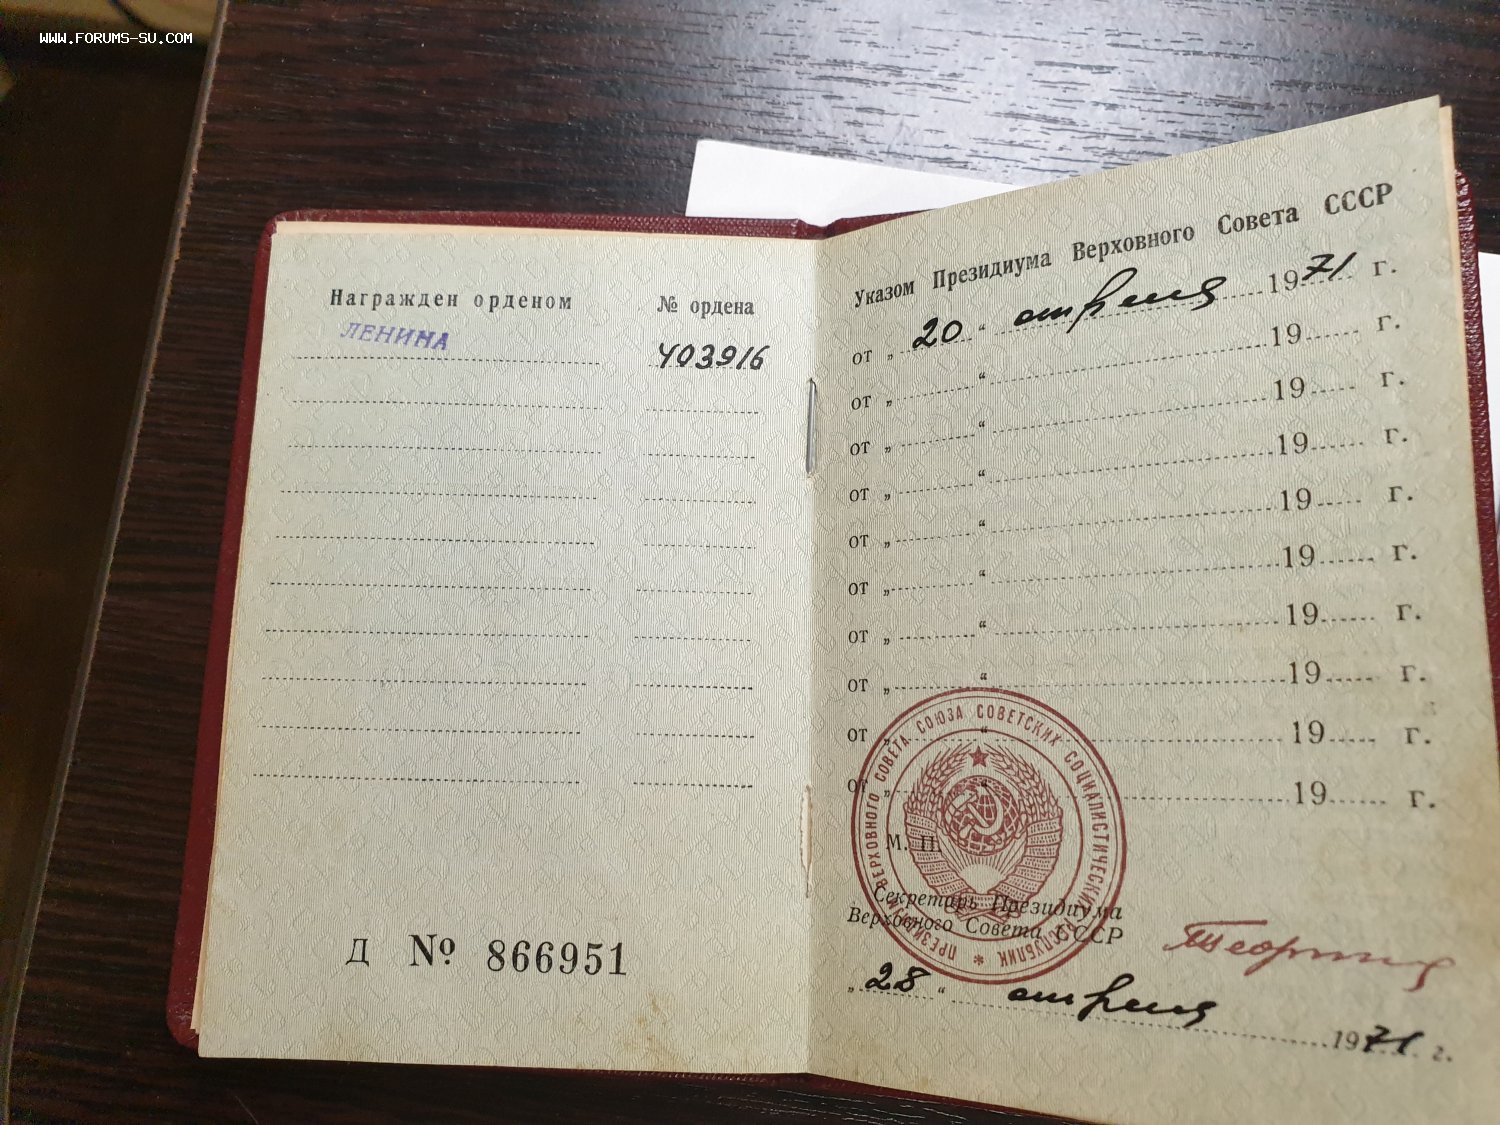 WWW.FORUMS-SU.COM
Награжден орденом № ордена
ЛЕНИНА 403916
Д № 866951
Указом Президиума Верховного Совета СССР
от „ 20 “ апреля 1971 г.
от „ “ 19 г.
от „ “ 19 г.
от „ “ 19 г.
от „ “ 19 г.
от „ “ 19 г.
от „ “ 19 г.
от „ “ 19 г.
от „ “ 19 г.
от „ “ 19 г.
М. П.
ПРЕЗИДИУМ ВЕРХОВНОГО СОВЕТА СОЮЗА СОВЕТСКИХ СОЦИАЛИСТИЧЕСКИХ РЕСПУБЛИК *
Секретарь Президиума
Верховного Совета СССР
„ 28 “ апреля 1971 г.